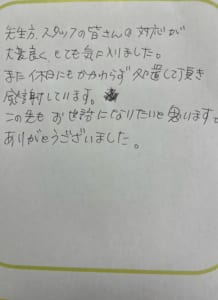 先生方、スタッフの皆さんの対応が
大変良く、とても気に入りました。
また休日にもかかわらず処置して頂き
感謝しています。
この先も お世話になりたいと思います。
ありがとうございました。